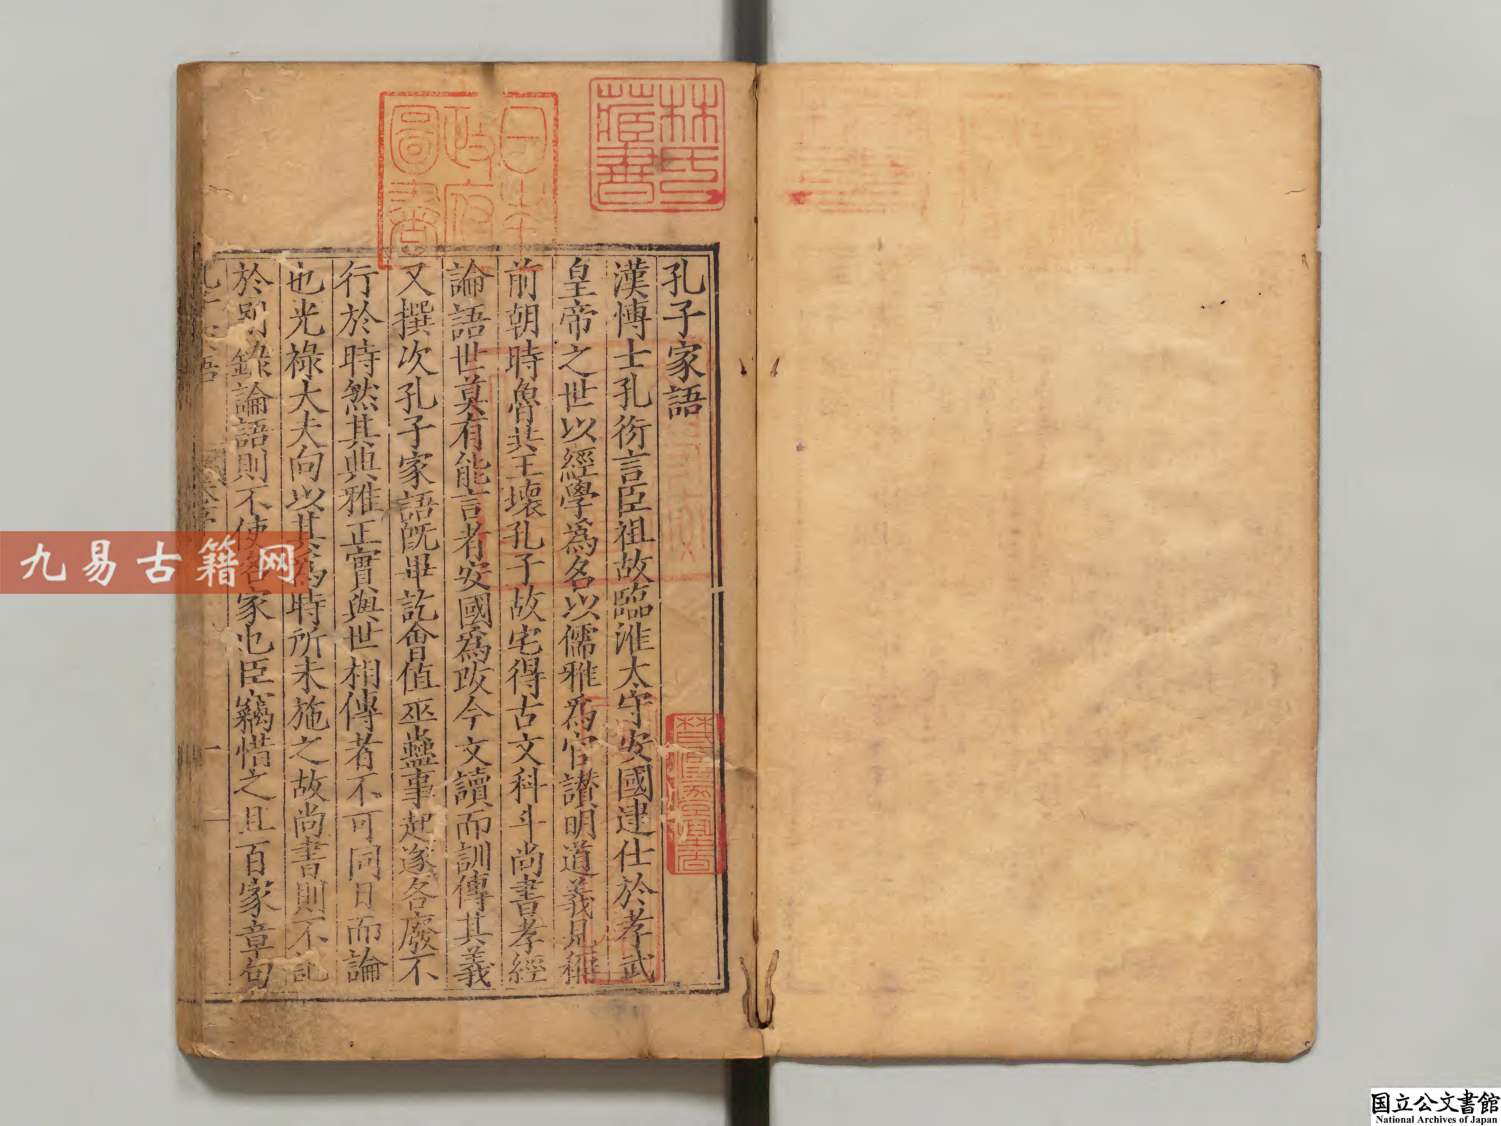 孔子家語
漢博士孔衍言臣祖故臨淮太守安國逮仕於孝武
皇帝之世以經學為名以儒雅為官讃明道義見稱
前朝時魯共王壞孔子故宅得古文科斗尚書孝經
論語世莫有能言者安國爲攺今文讀而訓傳其義
又撰次孔子家語旣畢訖會值巫蠱事起遂各廢不
行於時然其典雅正實與世相傳者不可同日而論
也光祿大夫向以其為時所未施之故尚書則不記
於別錄論語則不使名家也臣竊惜之且百家章句
林氏藏書
日本政府圖書
九易古籍网
国立公文書館
National Archives of Japan